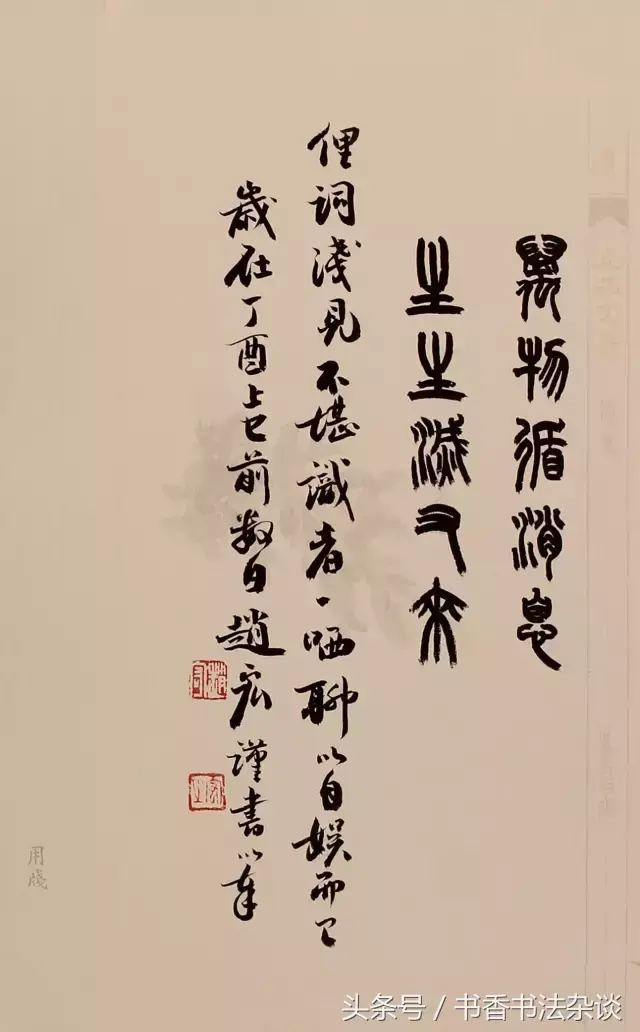 萬物循消息
生生滅又來
俚詞淺見不堪識者一哂聊以自娛而已
歲在丁酉上巳前數日趙宏謹書以奉
用牋
头条号／书香书法杂谈